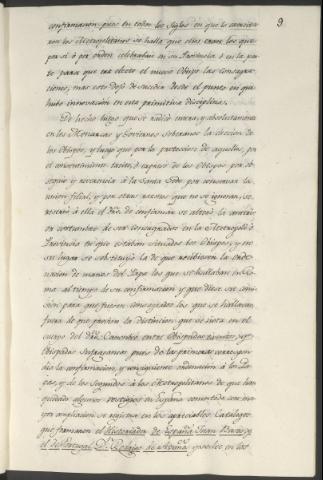 9
confirmacion, pues en todos los Siglos en que se exercita
ron los Metropolitanos se halla que ellos eran los que
por sí ó por orden celebraban en su Provincia ó en la par
te para que era electo el nuevo Obispo las consagra
ciones, mas esto dejó de suceder desde el punto en que
hubo innovacion en esta primitiva disciplina.
De hecho luego que se radicó entera, y absolutamente
en los Monarcas y Soberanos la eleccion de
los Obispos, y luego que por la proteccion de aquellos, por
el consentimiento tacito, ó expreso de los Obispos por ob
sequio y reverencia à la Santa Sede por conservar la
union filial, y por otras razones que no se ignoran, se
reservó à ella el dro. de confirmar se alteró la anterior
costumbre de ser consagrados en la Metropoli ó
Provincia en que estaban situados los Obispos, y en
su lugar se substituyó la de que recibiesen la orde
nacion de manos del Papa los que se hallaban en Ro
ma al tiempo de su confirmacion y que diese su comi
sion para que fuesen consagrados los que se hallaban
fuera de que provino la distincion que se nota en el
cuerpo del dro. Canonico entre Obispados exentos, y
Obispados Sufraganeos pues de los primeros correspon
dia la confirmacion, y consiguiente ordenacion à los Pa
pas, y de los Segundos à los Metropolitanos de que han
quedado algunos vestigios en España conocida con ma
yor ampliacion se registra en los apreciables Catálogos
que formaron el Historiador de España Juan Bautista y
el de Portugal Dn. Rodrigo de Acuña, quedose en los